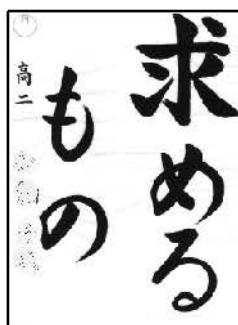 求める
もの
高二